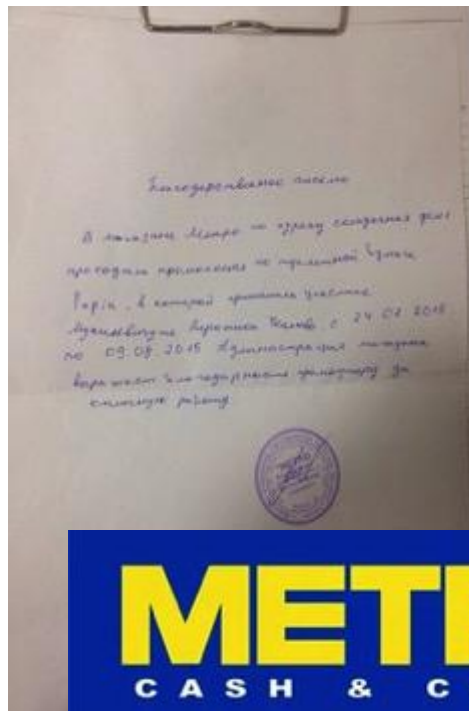 Благодарственное письмо
В магазине Метро по адресу складочная дом 1
проходила промоакция по туалетной бумаге
Papia, в которой приняла участие
Вероника с 24.07.2015
по 09.08.2015 Администрация магазина
выражает благодарность промоутеру за
отличную работу
METR
CASH & C